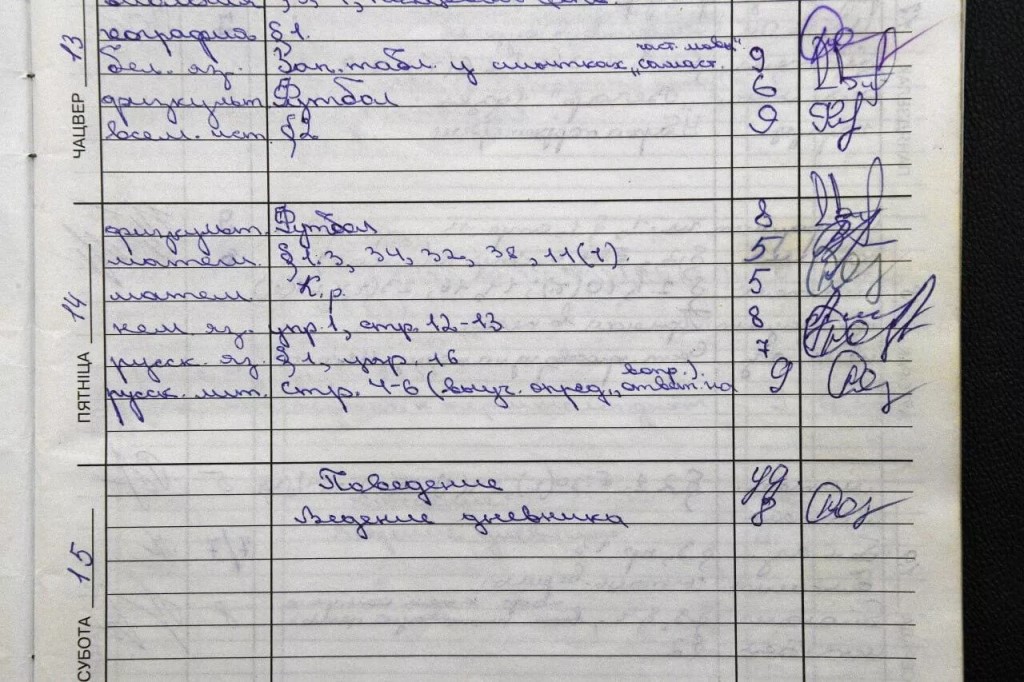 география §1.
бел. яз. Зап. табл. у сшытках „самаст. част. мовы" 9
физкульт. Футбол 6
всем. ист. §2 9
ЧАЦВЕР 13
физкульт. Футбол 8
матем. § 1.3, 34, 32, 38, 11(7). 5
матем. К.р. 5
нем. яз. упр. 1, стр. 12-13 8
русск. яз. § 1, упр. 16 7
русск. лит. стр. 4-6 (выуч. опред., ответ. на вопр.). 9
ПЯТНІЦА 14
Поведение уд.
Ведение дневника 8
СУБОТА 15